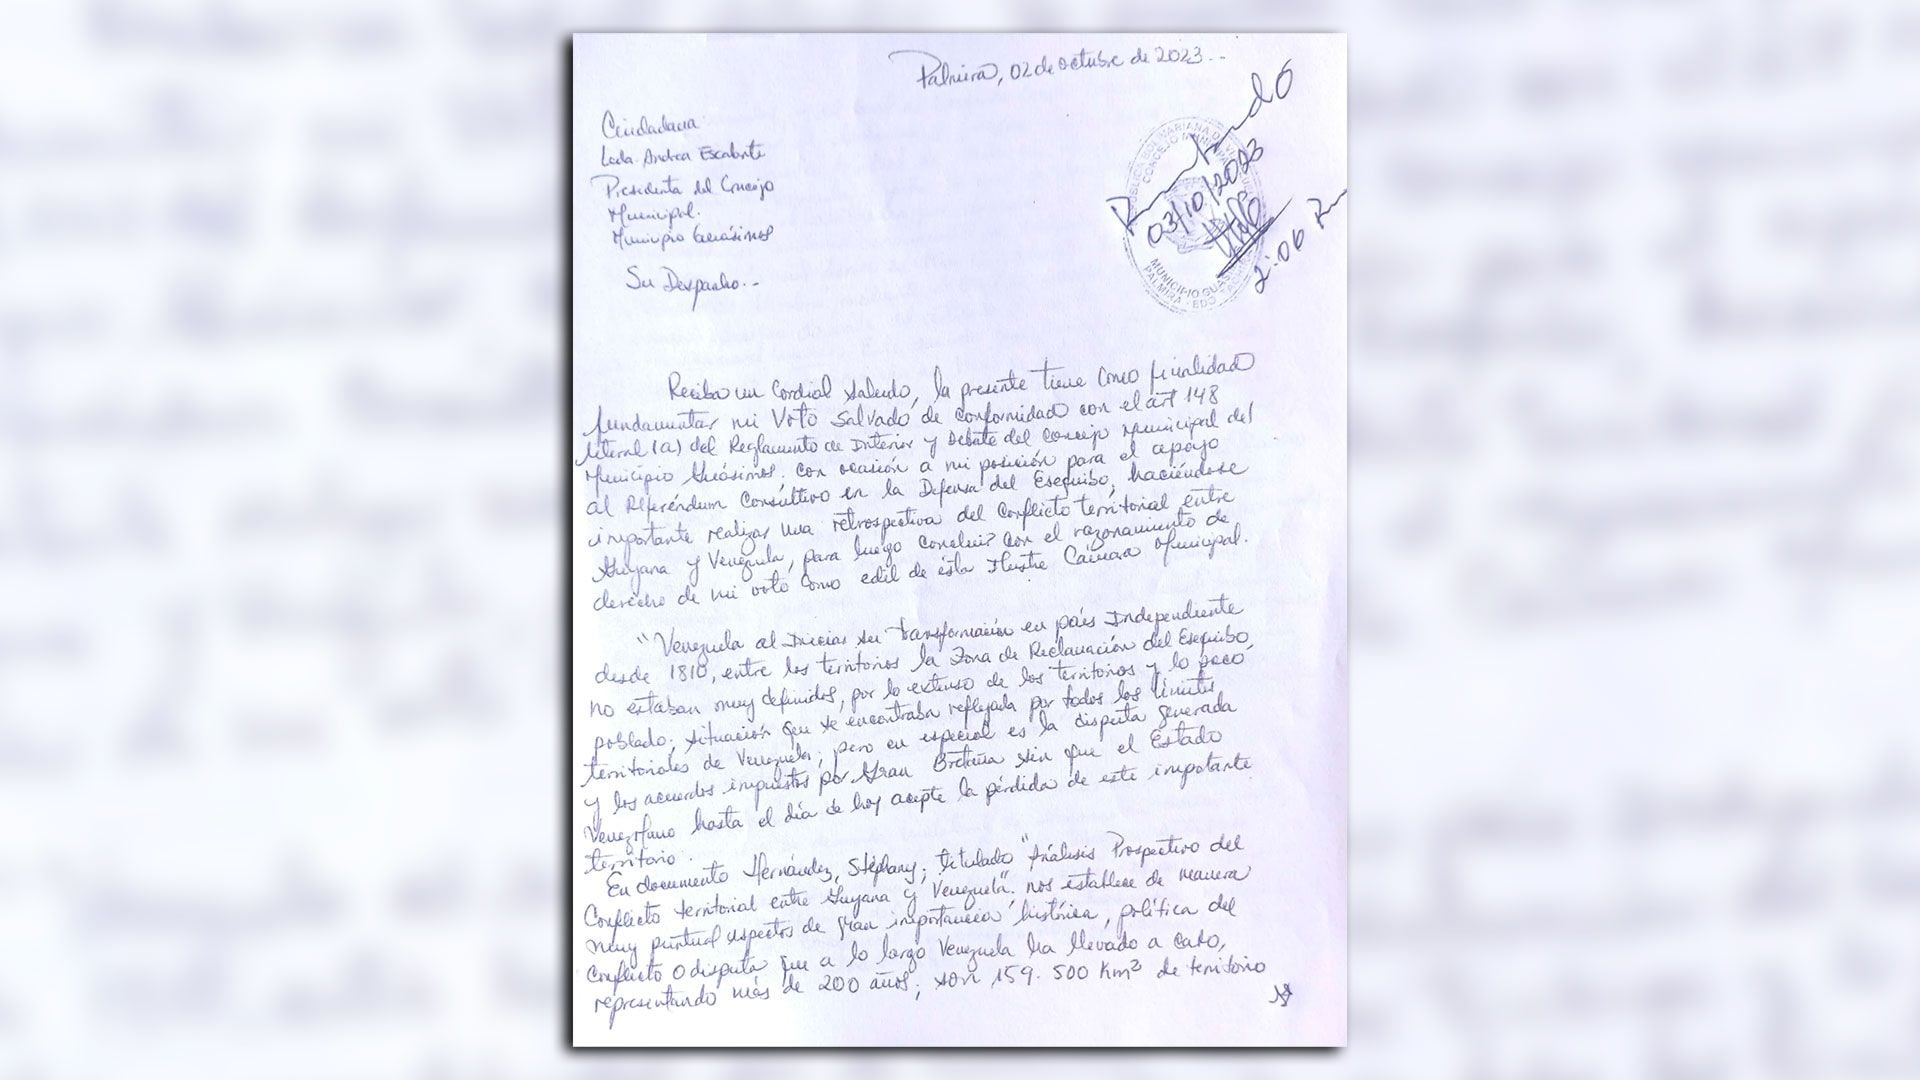 Palmira, 02 de octubre de 2023..
Ciudadana
Lcda. Andrea Escalante
Presidenta del Concejo
Municipal.
Municipio Guásimos
Su Despacho..
REPÚBLICA BOLIVARIANA DE
CONCEJO MUNICIPAL
MUNICIPIO GUÁSIMOS
PALMIRA - EDO.
03/10/2023
2:06
Reciba un Cordial Saludo, la presente tiene como finalidad
fundamentar mi Voto Salvado de conformidad con el art 148
literal (a) del Reglamento de Interior y Debate del Concejo Municipal del
Municipio Guásimos. con ocasión a mi posición para el apoyo
al Referéndum Consultivo en la Defensa del Esequibo, haciéndose
importante realizar una retrospectiva del conflicto territorial entre
Guyana y Venezuela, para luego concluir con el razonamiento de
derecho de mi voto como edil de ésta Ilustre Cámara Municipal.
"Venezuela al Iniciar su transformación en país Independiente
desde 1810, entre los territorios la Zona de Reclamación del Esequibo,
no estaban muy definidos, por lo extenso de los territorios y lo poco
poblado; situación que se encontraba reflejada por todos los límites
territoriales de Venezuela; pero en especial es la disputa generada
y los acuerdos impuestos por Gran Bretaña sin que el Estado
Venezolano hasta el día de hoy acepte la pérdida de este importante
territorio.
En documento Hernández, Stéphany; titulado "Análisis Prospectivo del
Conflicto territorial entre Guyana y Venezuela". nos establece de manera
muy puntual aspectos de gran importancia histórica, política del
conflicto o disputa que a lo largo Venezuela ha llevado a cabo,
representando más de 200 años; son 159.500 Km² de territorio